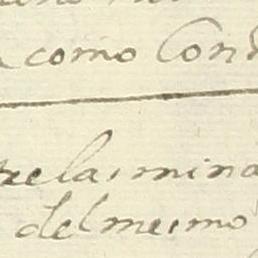 como Con
relas mina
del mesmo